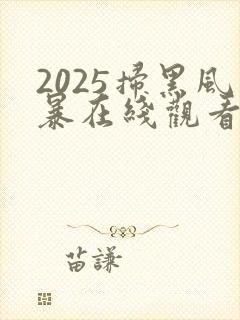 2025掃黑風
暴在綫觀看
苗謙